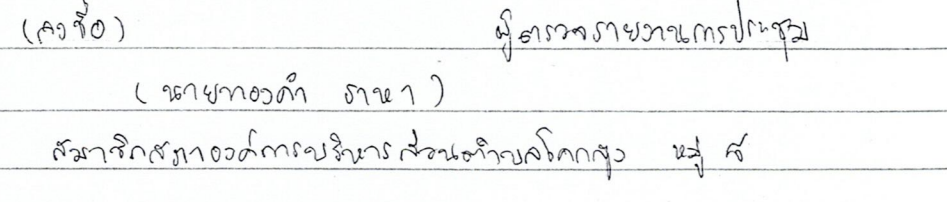 (ลงชื่อ) ผู้ตรวจรายงานการประชุม
(นายทองคำ ราหา)
สมาชิกสภาองค์การบริหารส่วนตำบลโคกสูง หมู่